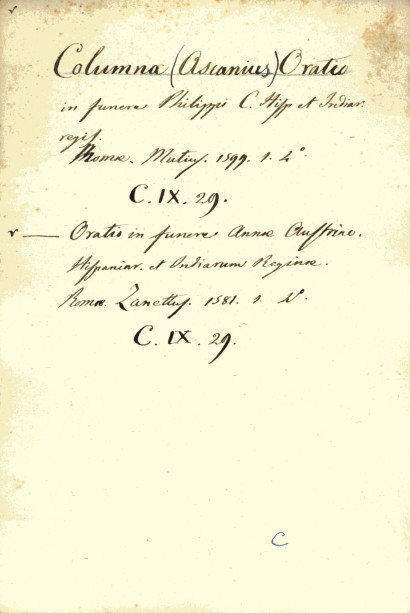 Columna (Ascanius) Oratio
in funere Philippi C. Hisp et Indiar.
regis.
Romae. Mutius. 1599. 1. 4°.
C. IX. 29.
v — Oratio in funere Annae Austriae.
Hispaniar. et Indiarum Reginae.
Romae. Zanettus. 1581. 1. 4°.
C. IX. 29.
C